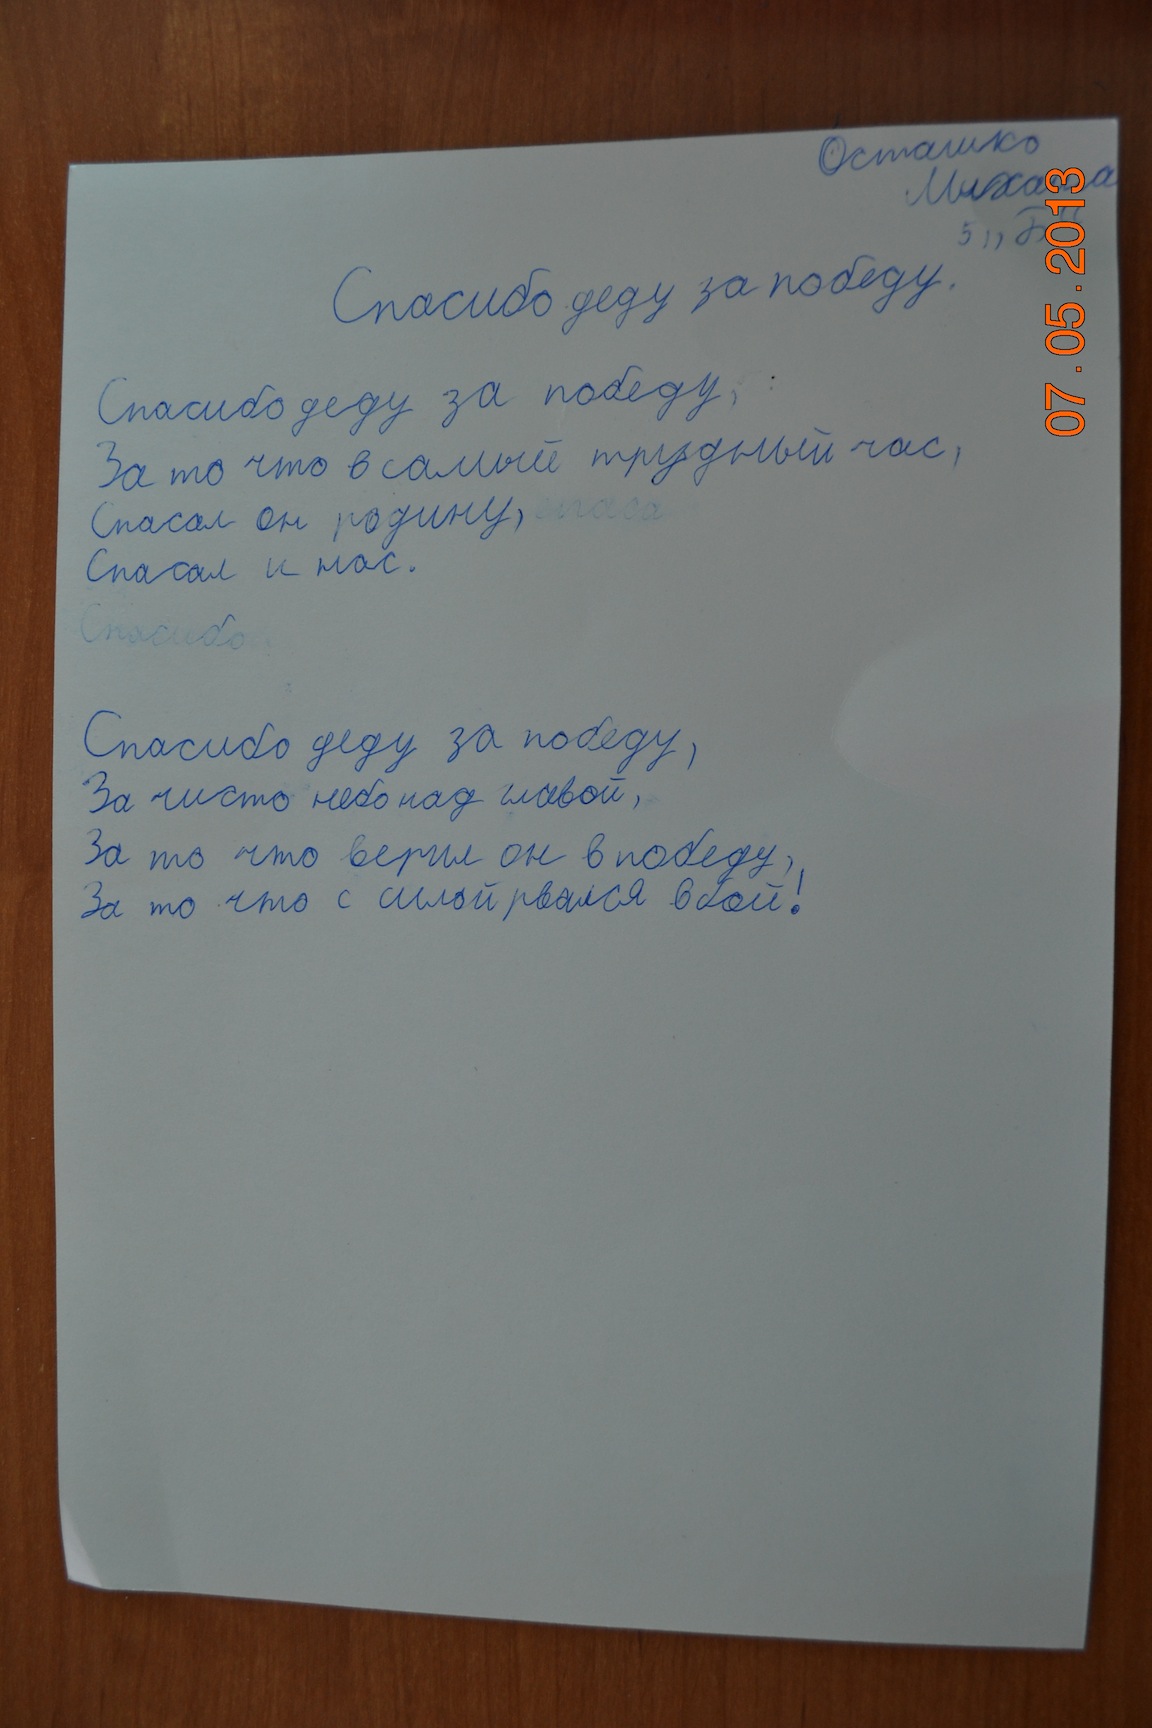 Осташко
Михаила
5 ,,Б"
07.05.2013
Спасибо деду за победу.
Спасибо деду за победу,
За то что в самый трудный час,
Спасал он родину, спаса
Спасал и нас.
Спасибо
Спасибо деду за победу,
За чисто небо над главой,
За то что верил он в победу,
За то что с силой рвался в бой!